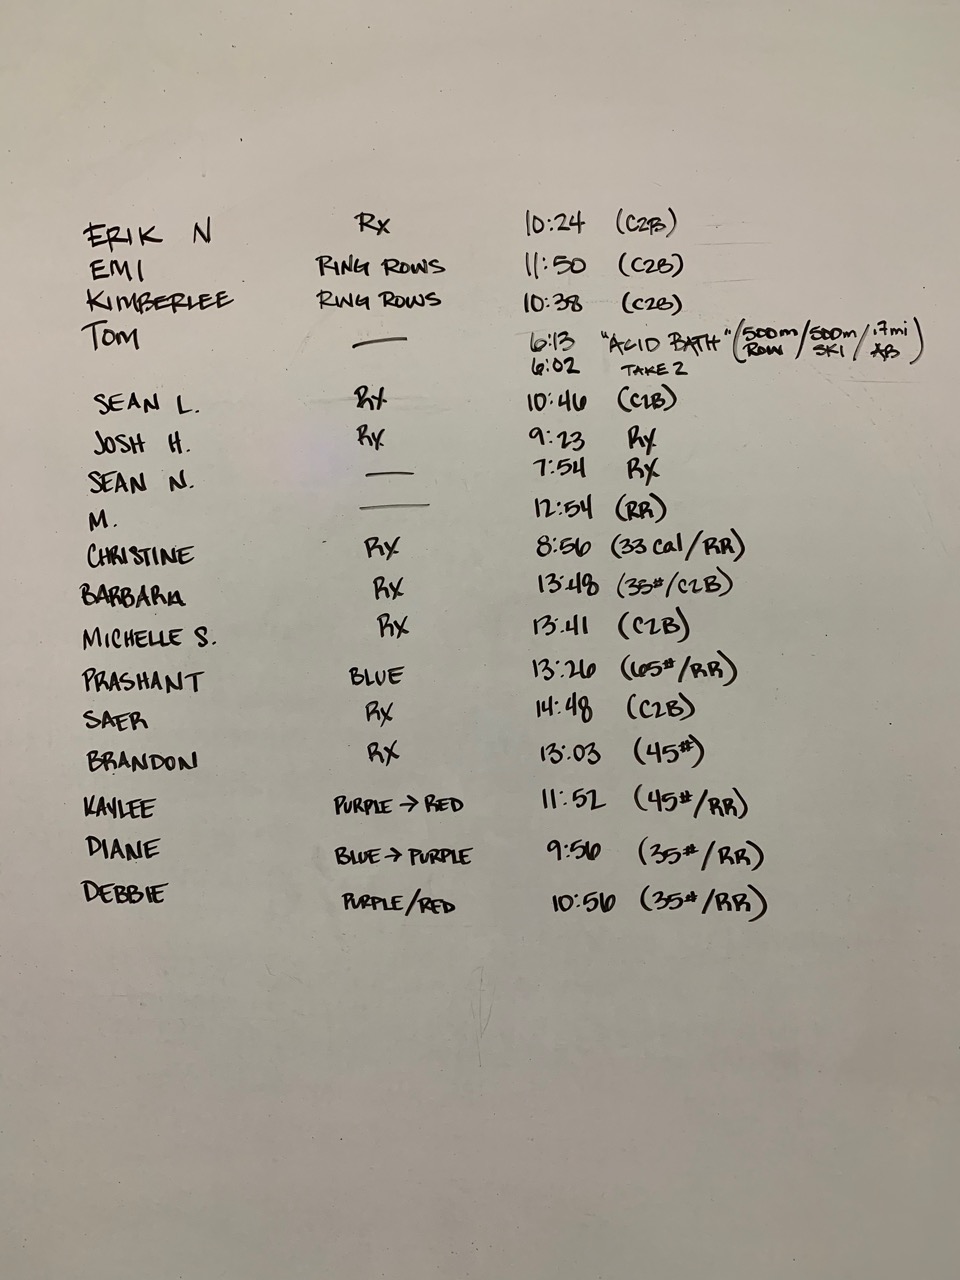 ERIK N Rx 10:24 (C2B)
EMI RING ROWS 11:50 (C2B)
KIMBERLEE RING ROWS 10:38 (C2B)
TOM — 6:13 "ACID BATH" (500m ROW/500m SKI/.7mi AB)
6:02 TAKE 2
SEAN L. Rx 10:46 (C2B)
JOSH H. Rx 9:23 Rx
SEAN N. — 7:54 Rx
M. — 12:54 (RR)
CHRISTINE Rx 8:56 (33 cal/RR)
BARBARA Rx 13:48 (35#/C2B)
MICHELLE S. Rx 13:41 (C2B)
PRASHANT BLUE 13:26 (65#/RR)
SAER Rx 14:48 (C2B)
BRANDON Rx 13:03 (45#)
KAYLEE PURPLE → RED 11:52 (45#/RR)
DIANE BLUE → PURPLE 9:56 (35#/RR)
DEBBIE PURPLE/RED 10:56 (35#/RR)